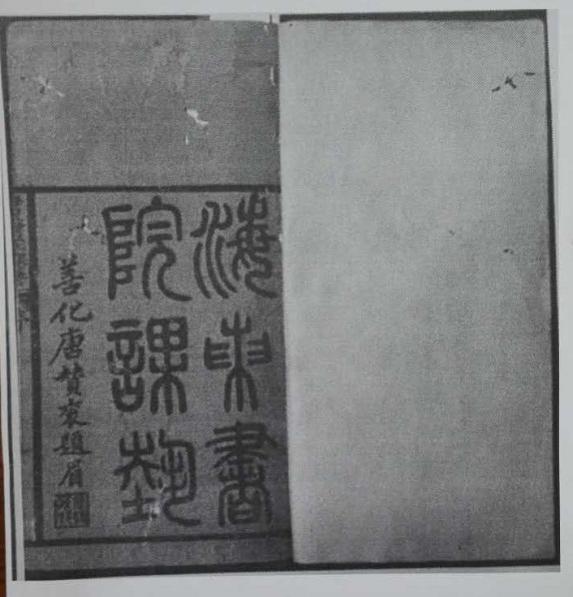 海東書
院課藝
善化唐贊袞題眉